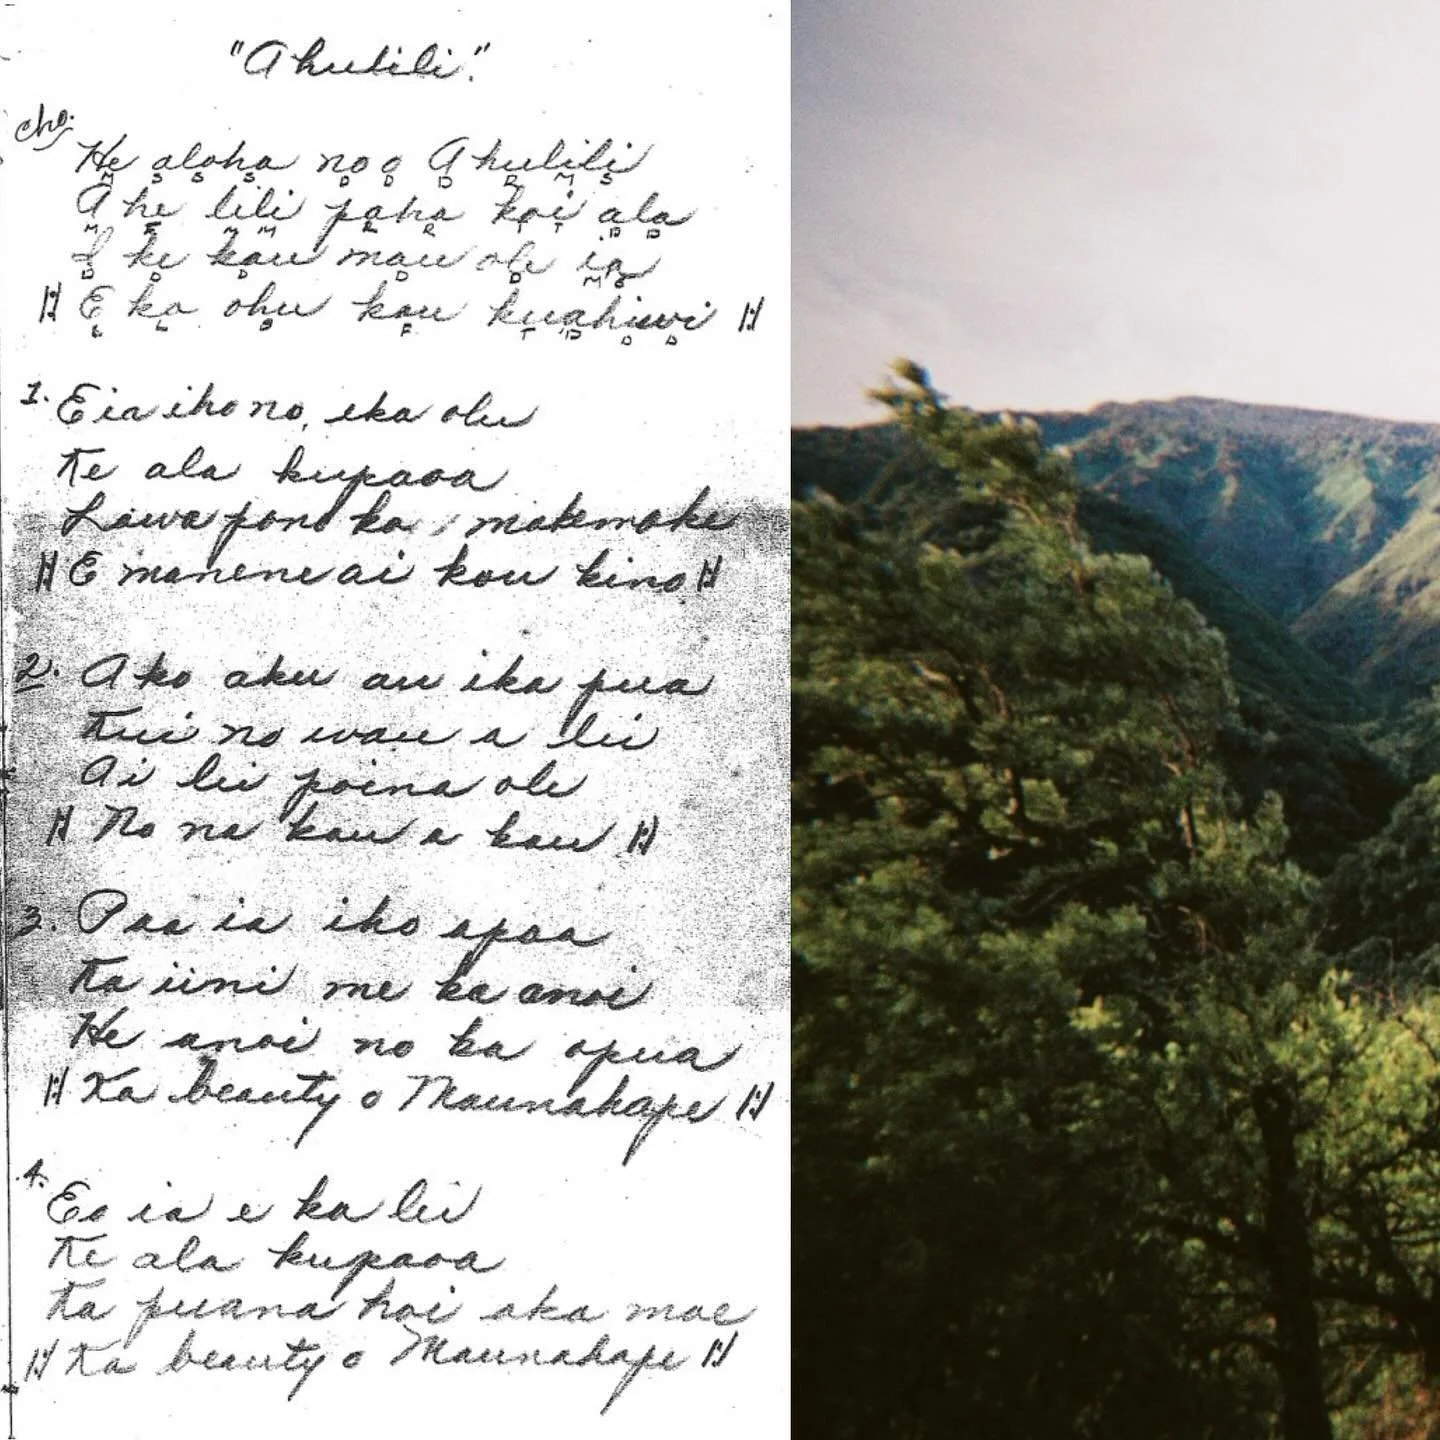 "Ahulili".
cho.
He aloha no o Ahulili
A he lili paha koi ala
I ke kau mau ole ia
E ka ohu kau kuahiwi
1. Eia iho no, eka olu
Ke ala kupaoa
Lawa pono ka makemake
E maneneai kou kino.
2. Ako aku au ika pua
Kui no wau a lei
Ai lei poina ole
No na kau a kau
3. Paa ia iho apaa
Ka iini me ka anoi
He anoi no ka opua
Ka beauty o Maunahape
4. Eo ia e ka lei
Ke ala kupaoa
Ka puana hoi aka moe
Ka beauty o Maunahape